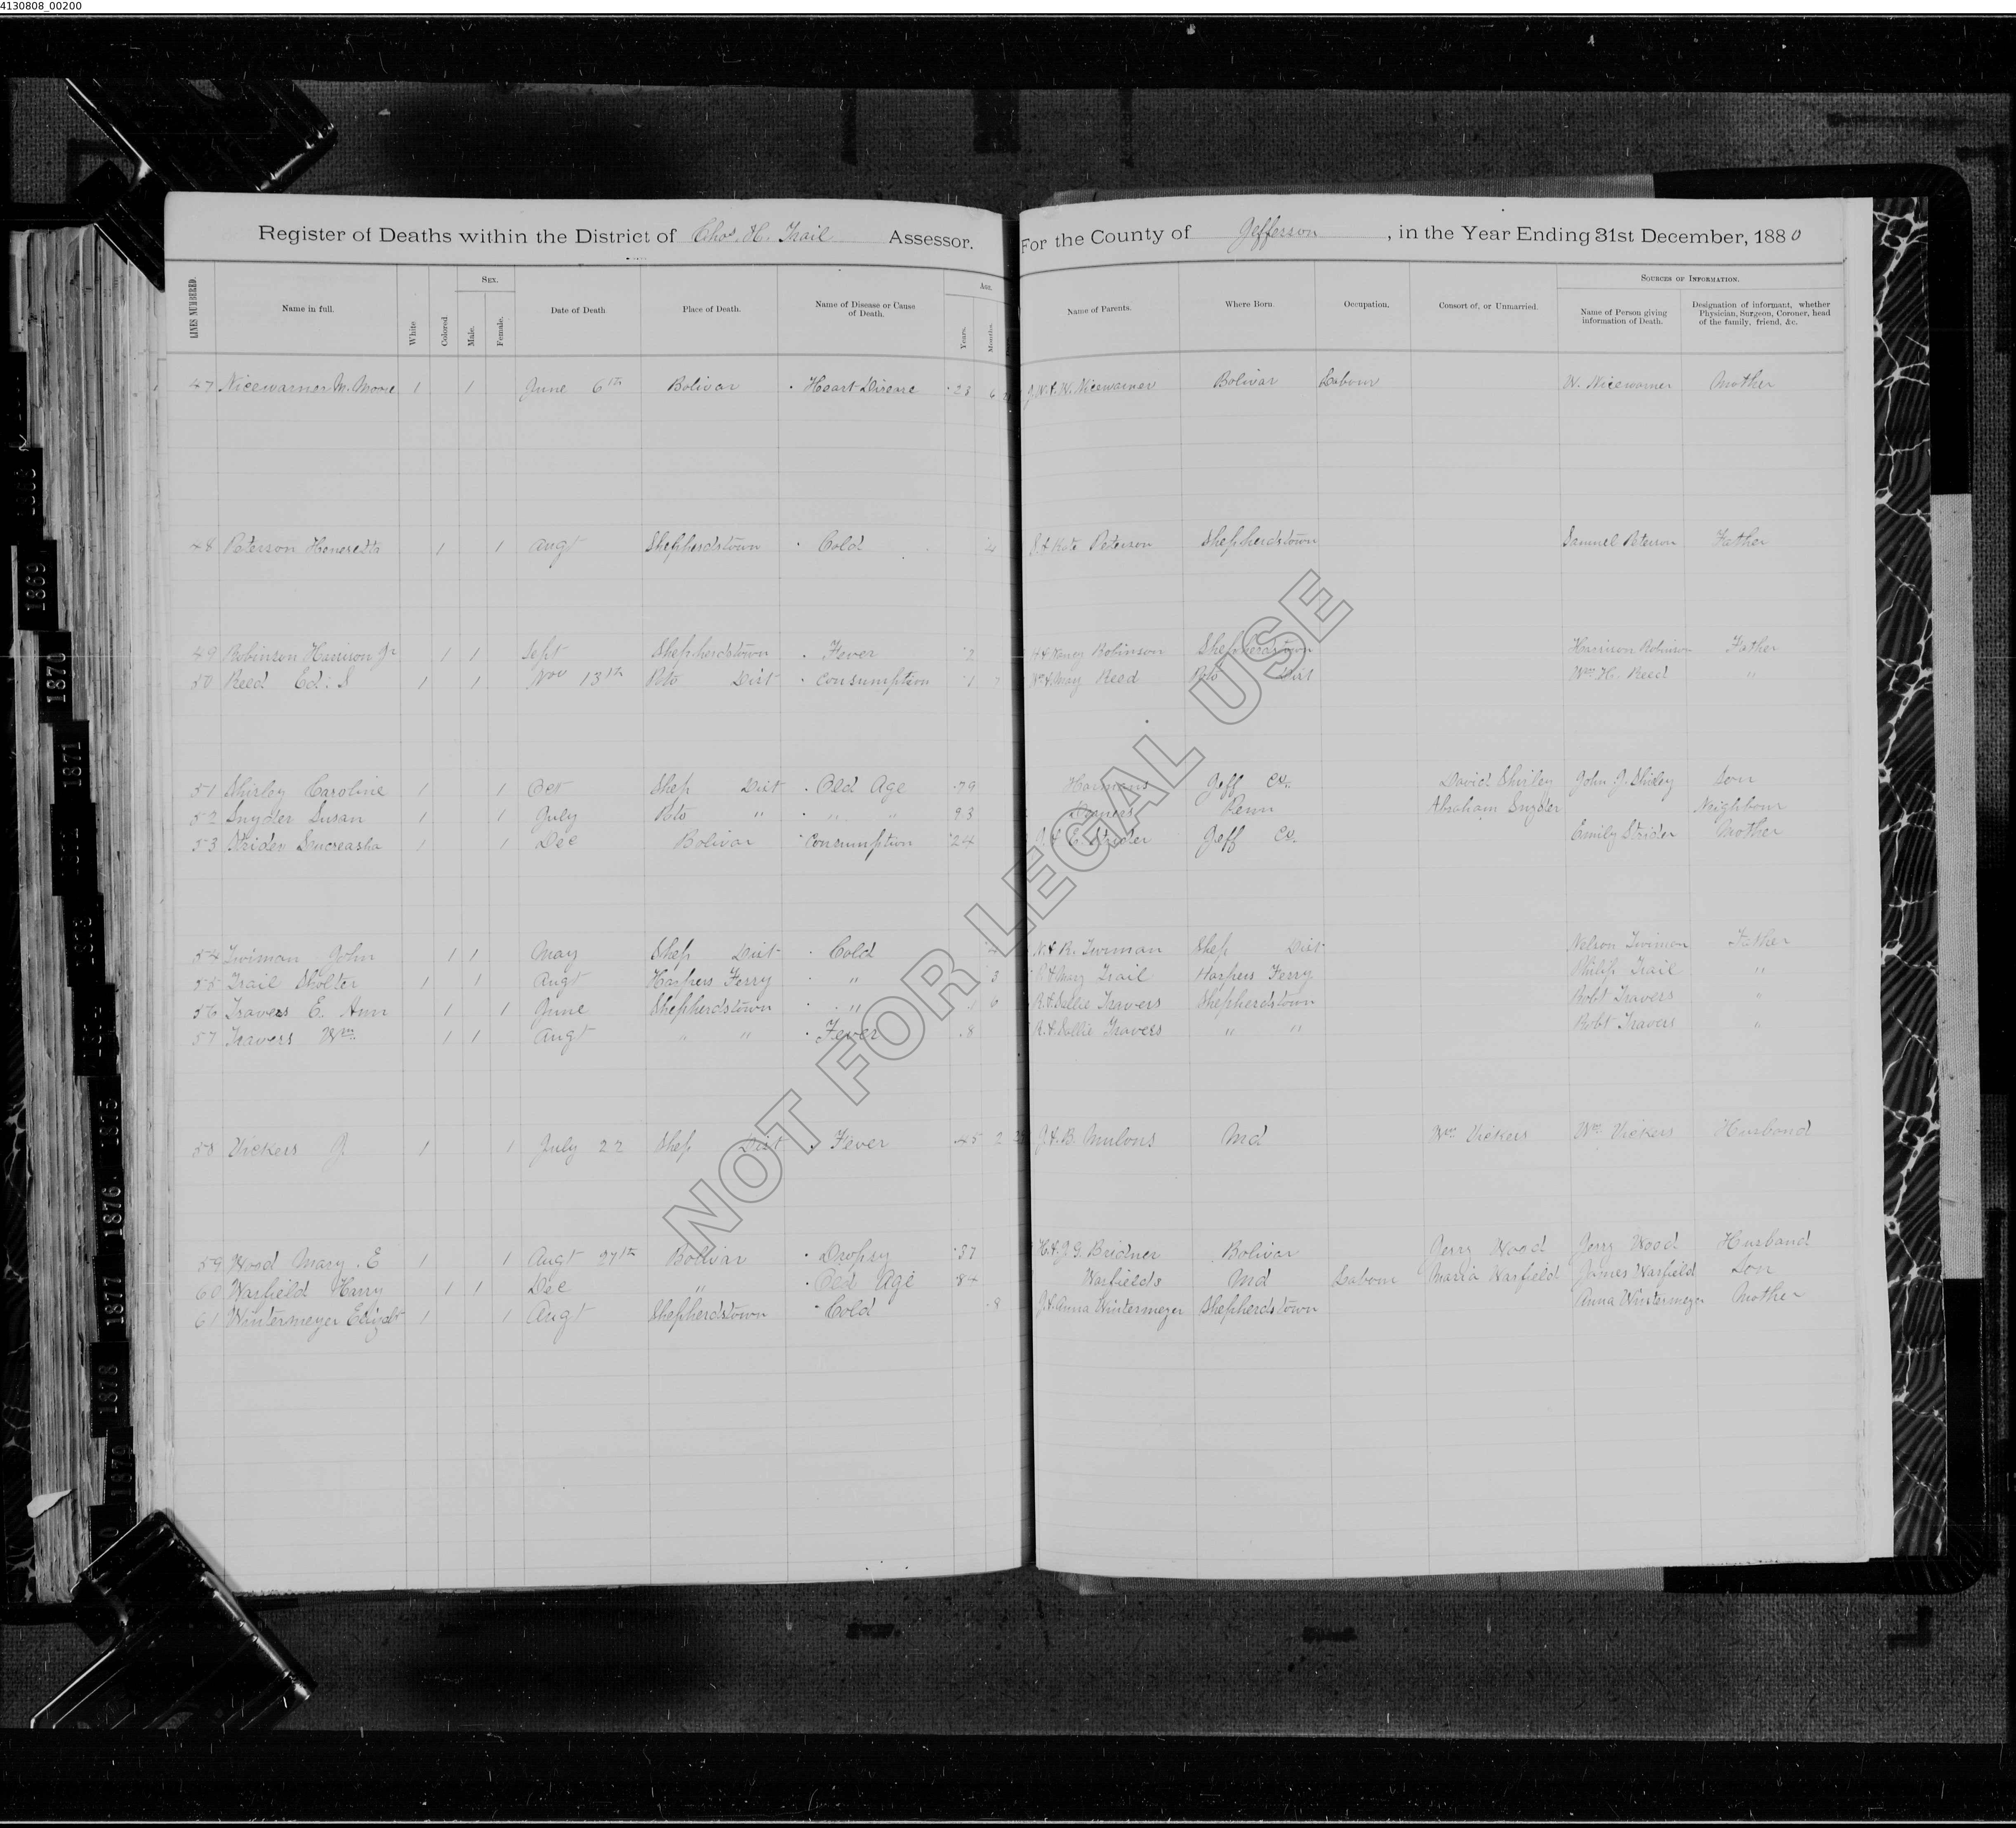 4130808_00200
Register of Deaths within the District of Chas. H. Trail Assessor. For the County of Jefferson, in the Year Ending 31st December, 1880
LINES NUMBERED. Name in full. White Colored. SEX. Male. Female. Date of Death Place of Death. Name of Disease or Cause of Death. AGE. Years. Months. Name of Parents. Where Born. Occupation. Consort of, or Unmarried. SOURCES OF INFORMATION. Name of Person giving information of Death. Designation of informant, whether Physician, Surgeon, Coroner, head of the family, friend, &c.
47 Nicewarner M. Moore 1 1 June 6th Bolivar Heart Disease 23 6 J.W. & W. Nicewarner Bolivar Labour W. Nicewarner Mother
48 Peterson 1 1 Augt Shepherdstown Cold 4 S. & Kate Peterson Shepherdstown Samuel Peterson Father
49 Robinson Harrison Jr 1 1 Sept Shepherdstown Fever 2 H & Nancy Robinson Shepherdstown Harrison Robinson Father
50 Reed Ed. S 1 1 Nov 13th Poto Dist Consumption 1 7 Wm & May Reed Poto Dist Wm H. Reed "
51 Shirley Caroline 1 1 Oct Shep Dist Old Age 79 Jeff Co. David Shirley John J. Shirley Son
52 Snyder Susan 1 1 July Poto " " " 93 Penn Abraham Snyder Neighbour
53 Strider 1 1 Dec Bolivar Consumption 24 & E. Strider Jeff Co. Emily Strider Mother
54 Twiman John 1 1 May Shep Dist Cold 4 N. & R. Twiman Shep Dist Nelson Twiman Father
55 Trail Sholter 1 1 Augt Harpers Ferry " 3 P. & Mary Trail Harpers Ferry Philip Trail "
56 Travers E. Ann 1 1 June Shepherdstown " 6 R. & Sallie Travers Shepherdstown Robt Travers "
57 Travers Wm 1 1 Augt " " Fever 8 R. & Sallie Travers " " Robt Travers "
58 Vickers J 1 1 July 22 Shep Dist Fever 45 2 J. & B. Md Wm Vickers Wm Vickers Husband
59 Wood Mary E 1 1 Augt 27th Bolivar Dropsy 37 H. & J. G. Bridner Bolivar Jerry Wood Jerry Wood Husband
60 Warfield Harry 1 1 Dec " Old Age 84 Warfields Md Labour Maria Warfield James Warfield Son
61 Wintermeyer Elizabt 1 1 Augt Shepherdstown Cold 8 J. & Anna Wintermeyer Shepherdstown Anna Wintermeyer Mother
NOT FOR LEGAL USE
1869
1870
1871
1873
1875
1876
1877
1878
1879